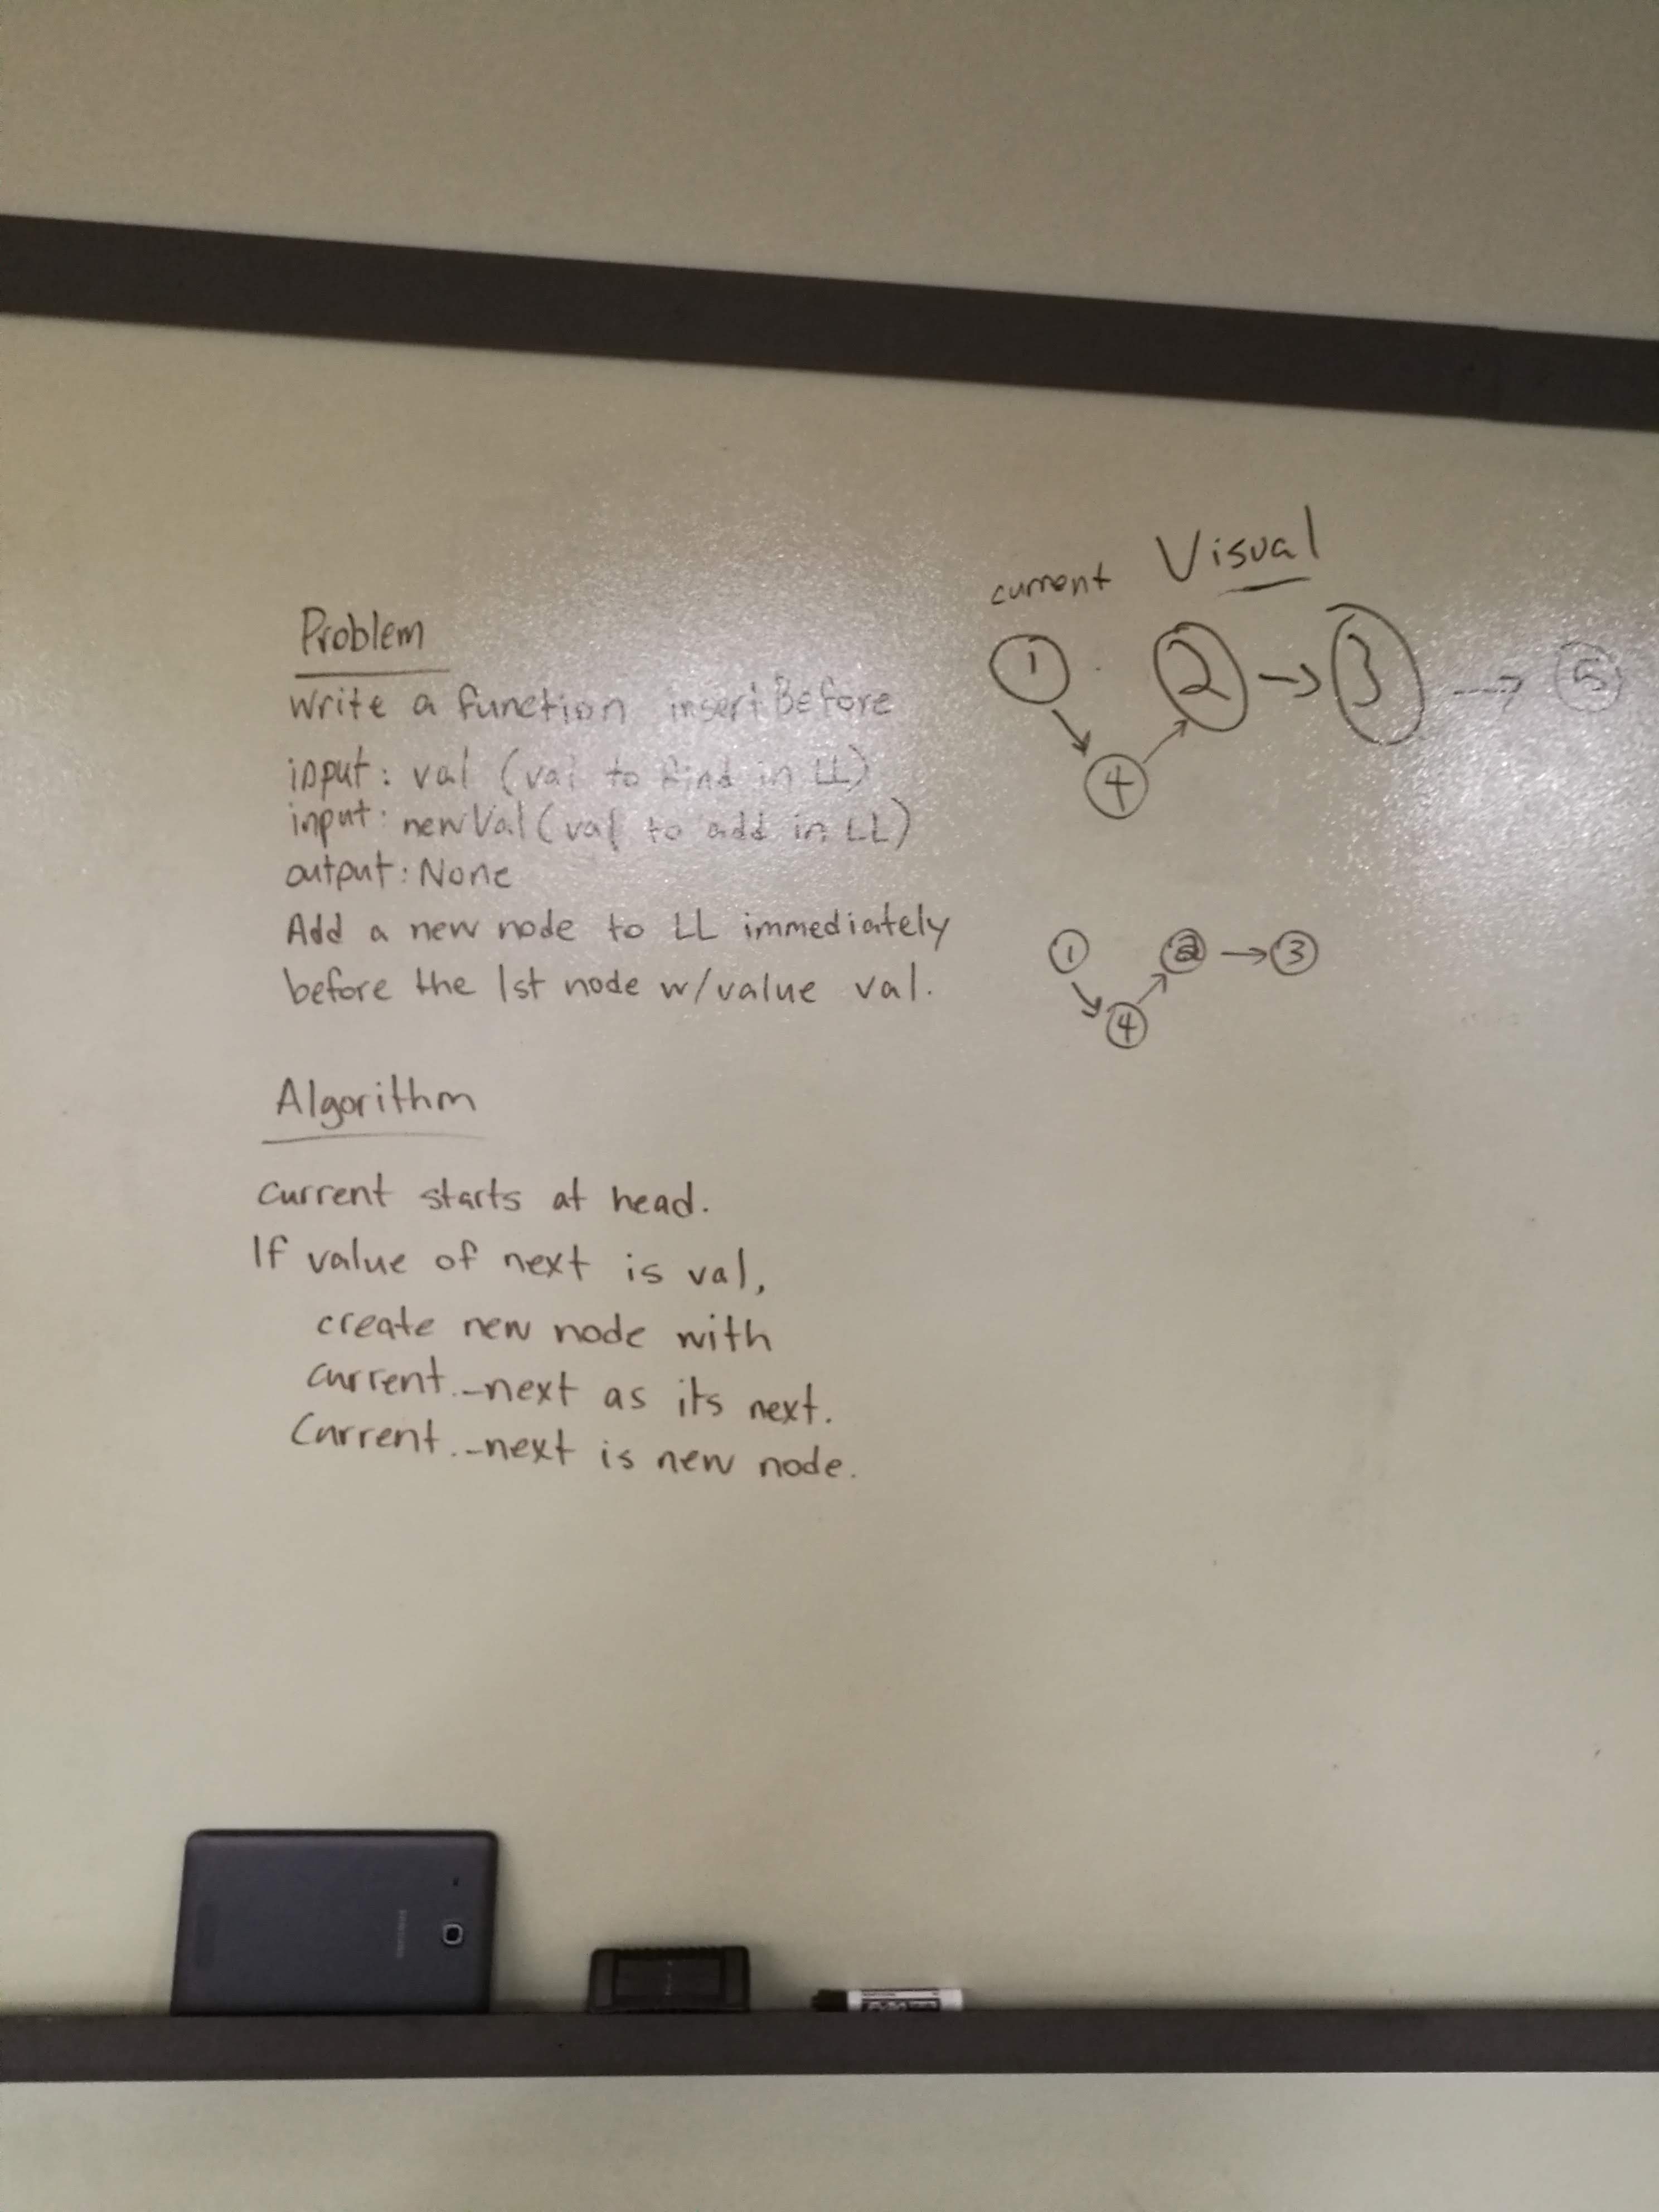 Problem
Write a function insertBefore
input: val (val to find in LL)
input: newVal (val to add in LL)
output: None
Add a new node to LL immediately
before the 1st node w/value val.
Algorithm
current starts at head.
If value of next is val,
create new node with
current._next as its next.
Current._next is new node.
Visual
current
1 2 → 3 → 5
4
1 2 → 3
4
SAMSUNG